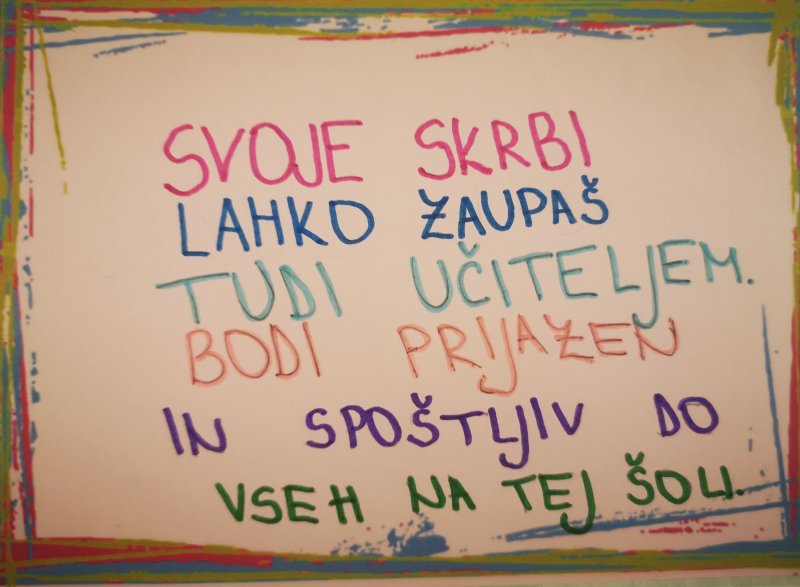 SVOJE SKRBI
LAHKO ZAUPAŠ
TUDI UČITELJEM.
BODI PRIJAZEN
IN SPOŠTLJIV DO
VSEH NA TEJ ŠOLI.